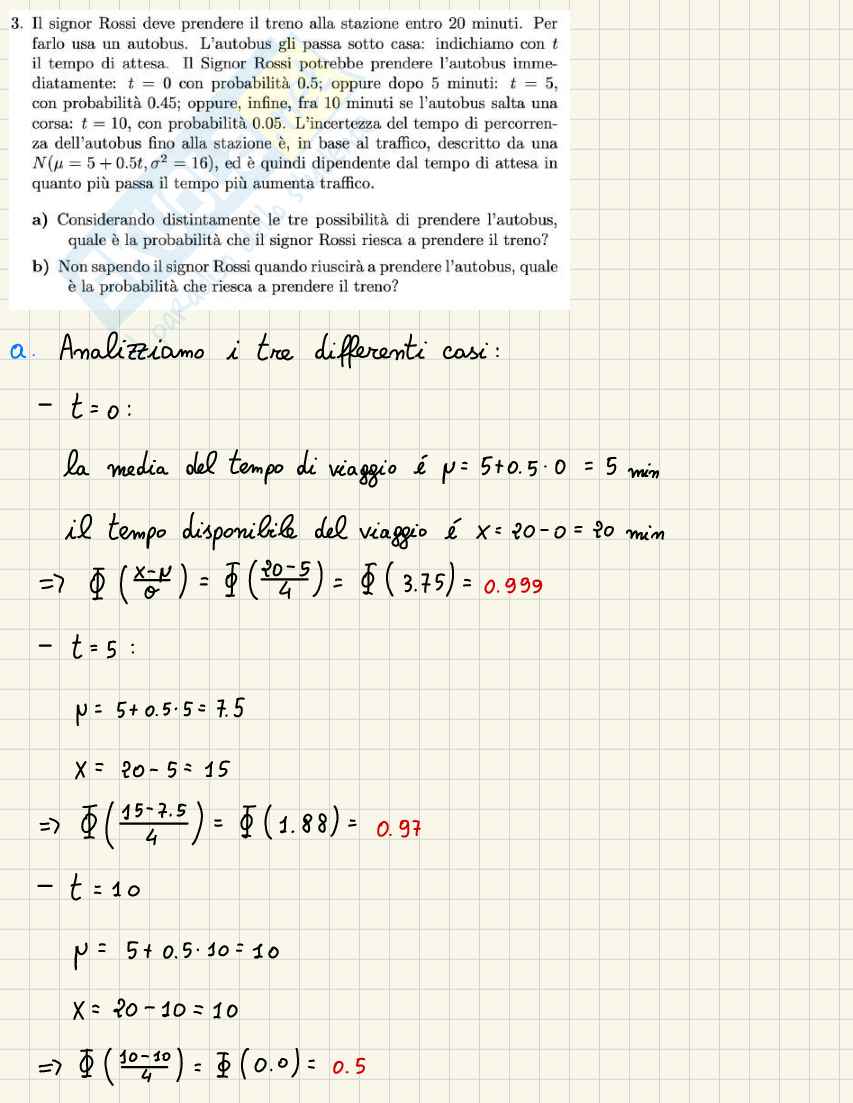 3. Il signor Rossi deve prendere il treno alla stazione entro 20 minuti. Per
farlo usa un autobus. L'autobus gli passa sotto casa: indichiamo con t
il tempo di attesa. Il Signor Rossi potrebbe prendere l'autobus imme-
diatamente: t = 0 con probabilità 0.5; oppure dopo 5 minuti: t = 5,
con probabilità 0.45; oppure, infine, fra 10 minuti se l'autobus salta una
corsa: t = 10, con probabilità 0.05. L'incertezza del tempo di percorren-
za dell'autobus fino alla stazione è, in base al traffico, descritto da una
N(μ = 5 + 0.5t, σ² = 16), ed è quindi dipendente dal tempo di attesa in
quanto più passa il tempo più aumenta traffico.
a) Considerando distintamente le tre possibilità di prendere l'autobus,
quale è la probabilità che il signor Rossi riesca a prendere il treno?
b) Non sapendo il signor Rossi quando riuscirà a prendere l'autobus, quale
è la probabilità che riesca a prendere il treno?
a. Analizziamo i tre differenti casi:
- t = 0:
la media del tempo di viaggio é μ = 5+0.5·0 = 5 min
il tempo disponibile del viaggio é x = 20-0 = 20 min
=> Φ((x-μ)/σ) = Φ((20-5)/4) = Φ(3.75) = 0.999
- t = 5:
μ = 5+0.5·5 = 7.5
x = 20-5 = 15
=> Φ((15-7.5)/4) = Φ(1.88) = 0.97
- t = 10
μ = 5+0.5·10 = 10
x = 20-10 = 10
=> Φ((10-10)/4) = Φ(0.0) = 0.5